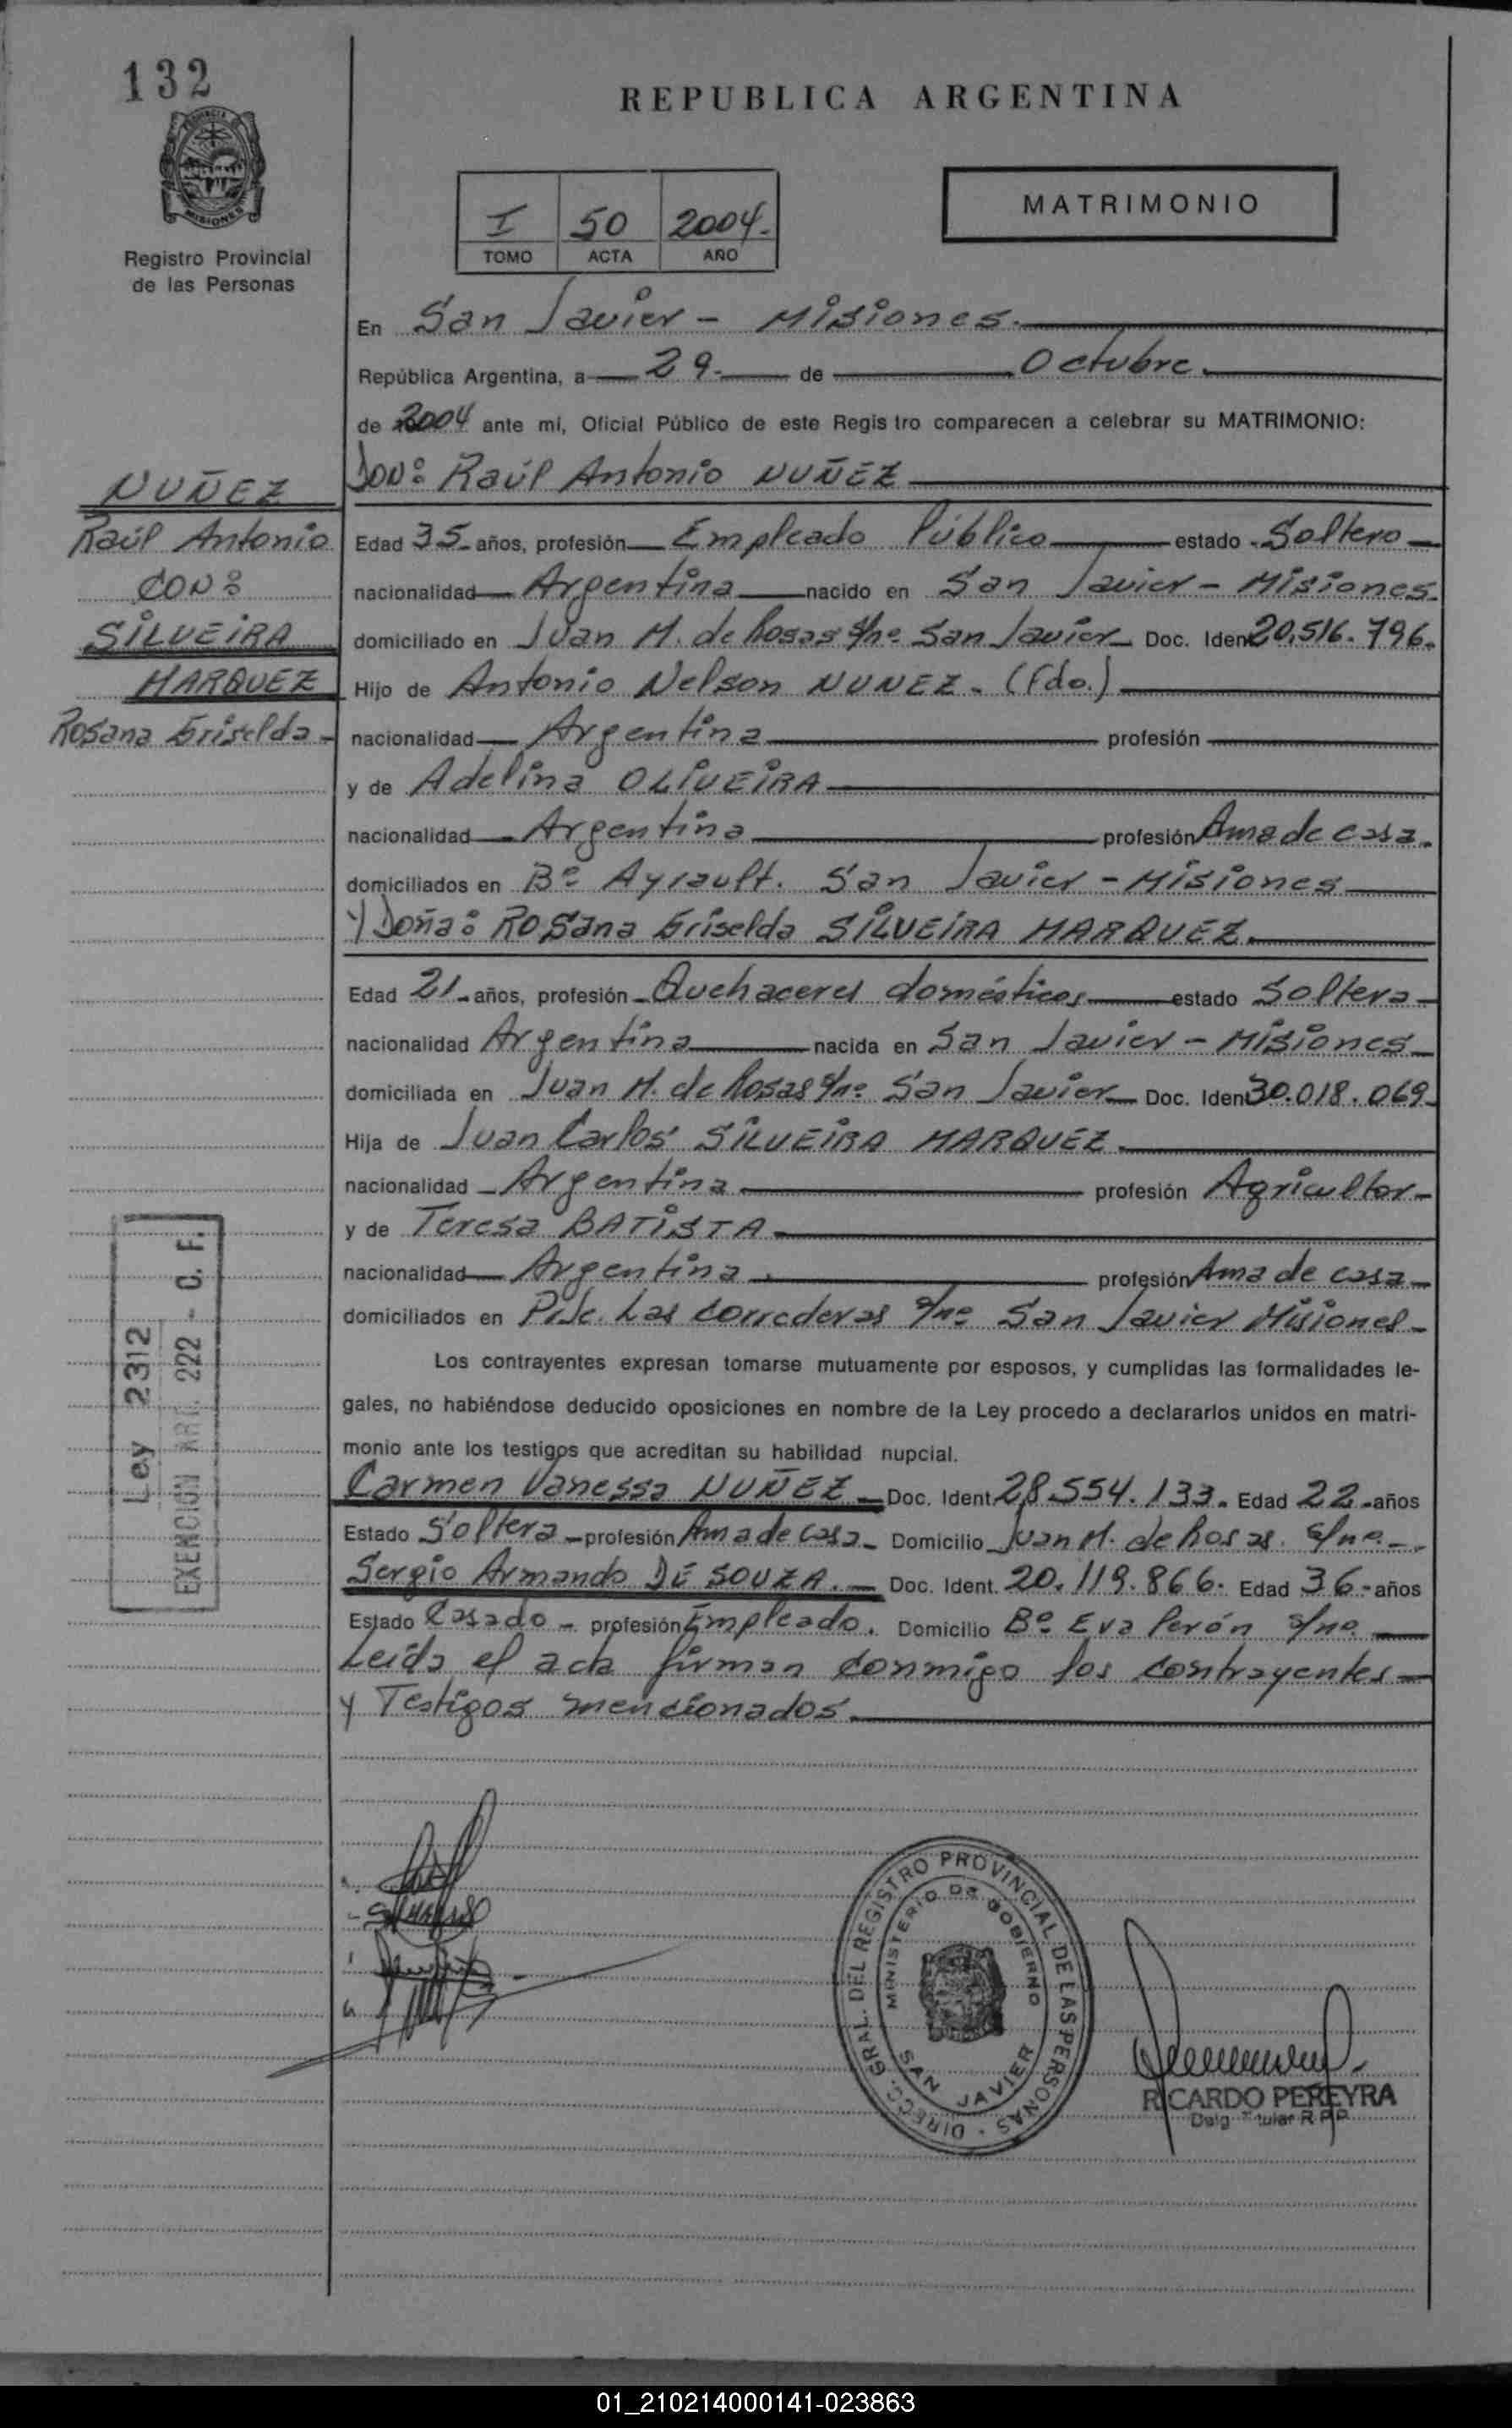 132
PROVINCIA DE
MISIONES
Registro Provincial
de las Personas
REPUBLICA ARGENTINA
I 50 2004.
TOMO ACTA AÑO
MATRIMONIO
En San Javier - Misiones.
República Argentina, a 29. de Octubre.
de 2004 ante mí, Oficial Público de este Regis tro comparecen a celebrar su MATRIMONIO:
NUÑEZ
Raúl Antonio
CON:
SILVEIRA
MARQUEZ
Rosana Griselda-
Don: Raúl Antonio NUÑEZ
Edad 35 años, profesión Empleado Público estado Soltero
nacionalidad Argentina nacido en San Javier - Misiones.
domiciliado en Juan M. de Rosas s/nº San Javier Doc. Iden 20.516.796.
Hijo de Antonio Nelson NUNEZ. (Fdo.)
nacionalidad Argentina profesión
y de Adelina OLIVEIRA
nacionalidad Argentina profesión Ama de casa.
domiciliados en Bº Ayrault. San Javier - Misiones
y Doña: Rosana Griselda SILVEIRA MARQUEZ.
Edad 21 años, profesión Quehaceres domésticos estado Soltera
nacionalidad Argentina nacida en San Javier - Misiones
domiciliada en Juan M. de Rosas s/nº San Javier Doc. Iden 30.018.069
Hija de Juan Carlos SILVEIRA MARQUEZ
nacionalidad Argentina profesión Agricultor
y de Teresa BATISTA
nacionalidad Argentina. profesión Ama de casa
domiciliados en Pje. Las Correderas s/nº San Javier Misiones
Los contrayentes expresan tomarse mutuamente por esposos, y cumplidas las formalidades le-
gales, no habiéndose deducido oposiciones en nombre de la Ley procedo a declararlos unidos en matri-
monio ante los testigos que acreditan su habilidad nupcial.
Carmen Vanessa NUÑEZ Doc. Ident. 28.554.133. Edad 22 años
Estado Soltera profesión Ama de casa Domicilio Juan M. de Rosas. s/nº
Sergio Armando DE SOUZA. Doc. Ident. 20.119.866. Edad 36 años
Estado Casado profesión Empleado. Domicilio Bº Eva Perón s/nº
Leída el acta firman conmigo los contrayentes
y Testigos mencionados.
Ley 2312
EXENCION ART. 222 - C. F.
DIRECC. GRAL. DEL REGISTRO PROVINCIAL DE LAS PERSONAS
MINISTERIO DE GOBIERNO
SAN JAVIER
RICARDO PEREYRA
Delg. Titular R.P.P.
01_210214000141-023863